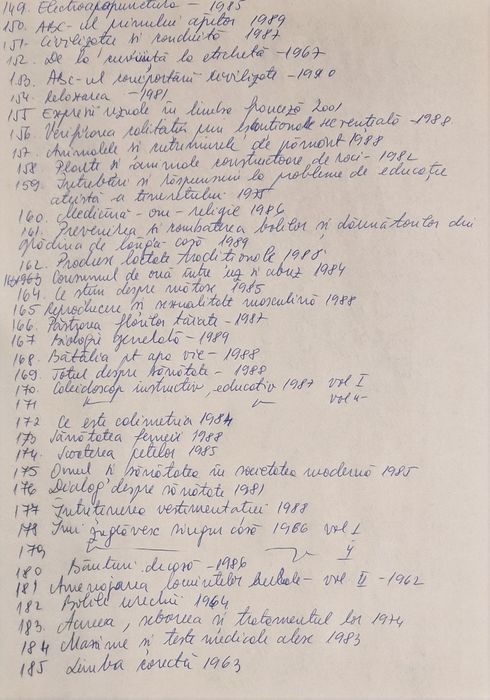 149. Electroacupunctura - 1985
150. ABC-ul primului ajutor 1989
151. Civilizație și conduită 1987
152. De la cuviință la etichetă - 1967
153. ABC-ul comportării civilizate - 1990
154. Relaxarea - 1981
155 Expresii uzuale în limba franceză 2001
156. Verificarea calității prin eșantionale secvențială - 1988
157. Animalele și cutremurele de pământ 1988
158 Plante și animale constructoare de roci - 1982
159. Întrebări și răspunsuri la probleme de educație
ateistă a tineretului 1975
160. Medicină - om - religie 1986
161. Prevenirea și combaterea bolilor și dăunătorilor din
grădina de lângă casă 1989
162. Produse lactate tradiționale 1988
163 Consumul de ouă între uz și abuz 1984
164. Ce știm despre mătase 1985
165 Reproducere și sexualitate masculină 1988
166. Păstrarea florilor tăiate - 1987
167 Biologie generală - 1989
168. Bătălia pt apa vie - 1988
169. Totul despre sănătate - 1988
170. Caleidoscop instructiv, educativ 1987 vol I
171 vol II
172 Ce este calimetria 1984
173 Sănătatea femeii 1988
174. Scoterea petelor 1985
175 Omul și sănătatea în societatea modernă 1985
176 Dialog despre sănătate 1981
177 Întreținerea vestimentației 1988
178 Îmi zugrăvesc singur casa 1986 vol I
179 II
180 Băuturi de casă - 1986
181 Amenajarea locuințelor - vol II - 1962
182 Bolile urechii 1964
183. Acneea, seboreea și tratamentul lor 1974
184 Maxime și texte medicale alese 1983
185 Limba corectă 1963